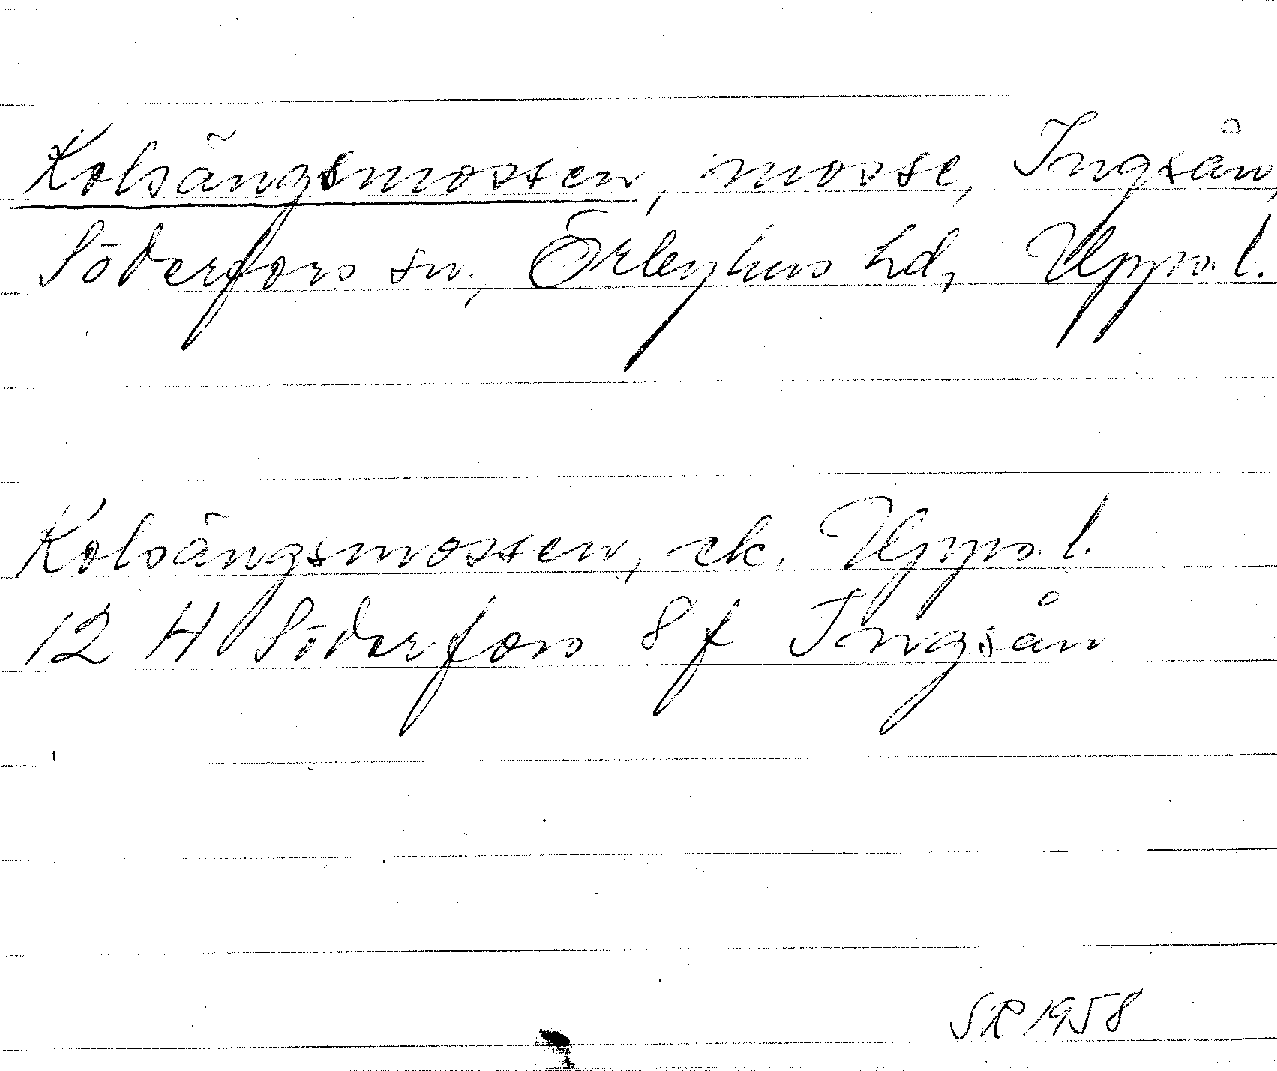 Kolsängsmossen, mosse, Ingsån,
Söderfors sn, Örbyhus hd, Upps. l.
Kolsängsmossen, ek. Upps. l.
12 H Söderfors 8 f Ingsån
SR 1958